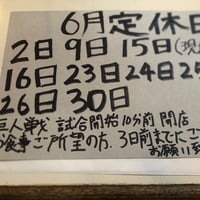 6月定休日
2日9日15日(現
16日23日24日25
26日30日
巨人戦 試合開始10分前 開店
お食事ご所望の方、3日前までにご
お願い致